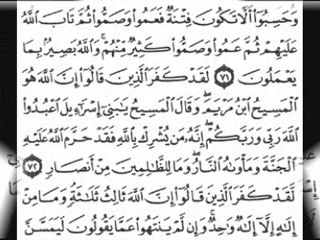 وَحَسِبُوٓا۟ أَلَّا تَكُونَ فِتْنَةٌ فَعَمُوا۟ وَصَمُّوا۟ ثُمَّ تَابَ ٱللَّهُ
عَلَيْهِمْ ثُمَّ عَمُوا۟ وَصَمُّوا۟ كَثِيرٌ مِّنْهُمْ ۚ وَٱللَّهُ بَصِيرٌۢ بِمَا
يَعْمَلُونَ ٧١ لَقَدْ كَفَرَ ٱلَّذِينَ قَالُوٓا۟ إِنَّ ٱللَّهَ هُوَ
ٱلْمَسِيحُ ٱبْنُ مَرْيَمَ ۖ وَقَالَ ٱلْمَسِيحُ يَٰبَنِىٓ إِسْرَٰٓءِيلَ ٱعْبُدُوا۟
ٱللَّهَ رَبِّى وَرَبَّكُمْ ۖ إِنَّهُۥ مَن يُشْرِكْ بِٱللَّهِ فَقَدْ حَرَّمَ ٱللَّهُ عَلَيْهِ
ٱلْجَنَّةَ وَمَأْوَىٰهُ ٱلنَّارُ ۖ وَمَا لِلظَّٰلِمِينَ مِنْ أَنصَارٍ ٧٢
لَّقَدْ كَفَرَ ٱلَّذِينَ قَالُوٓا۟ إِنَّ ٱللَّهَ ثَالِثُ ثَلَٰثَةٍ ۘ وَمَا مِنْ
إِلَٰهٍ إِلَّآ إِلَٰهٌ وَٰحِدٌ ۚ وَإِن لَّمْ يَنتَهُوا۟ عَمَّا يَقُولُونَ لَيَمَسَّنَّ